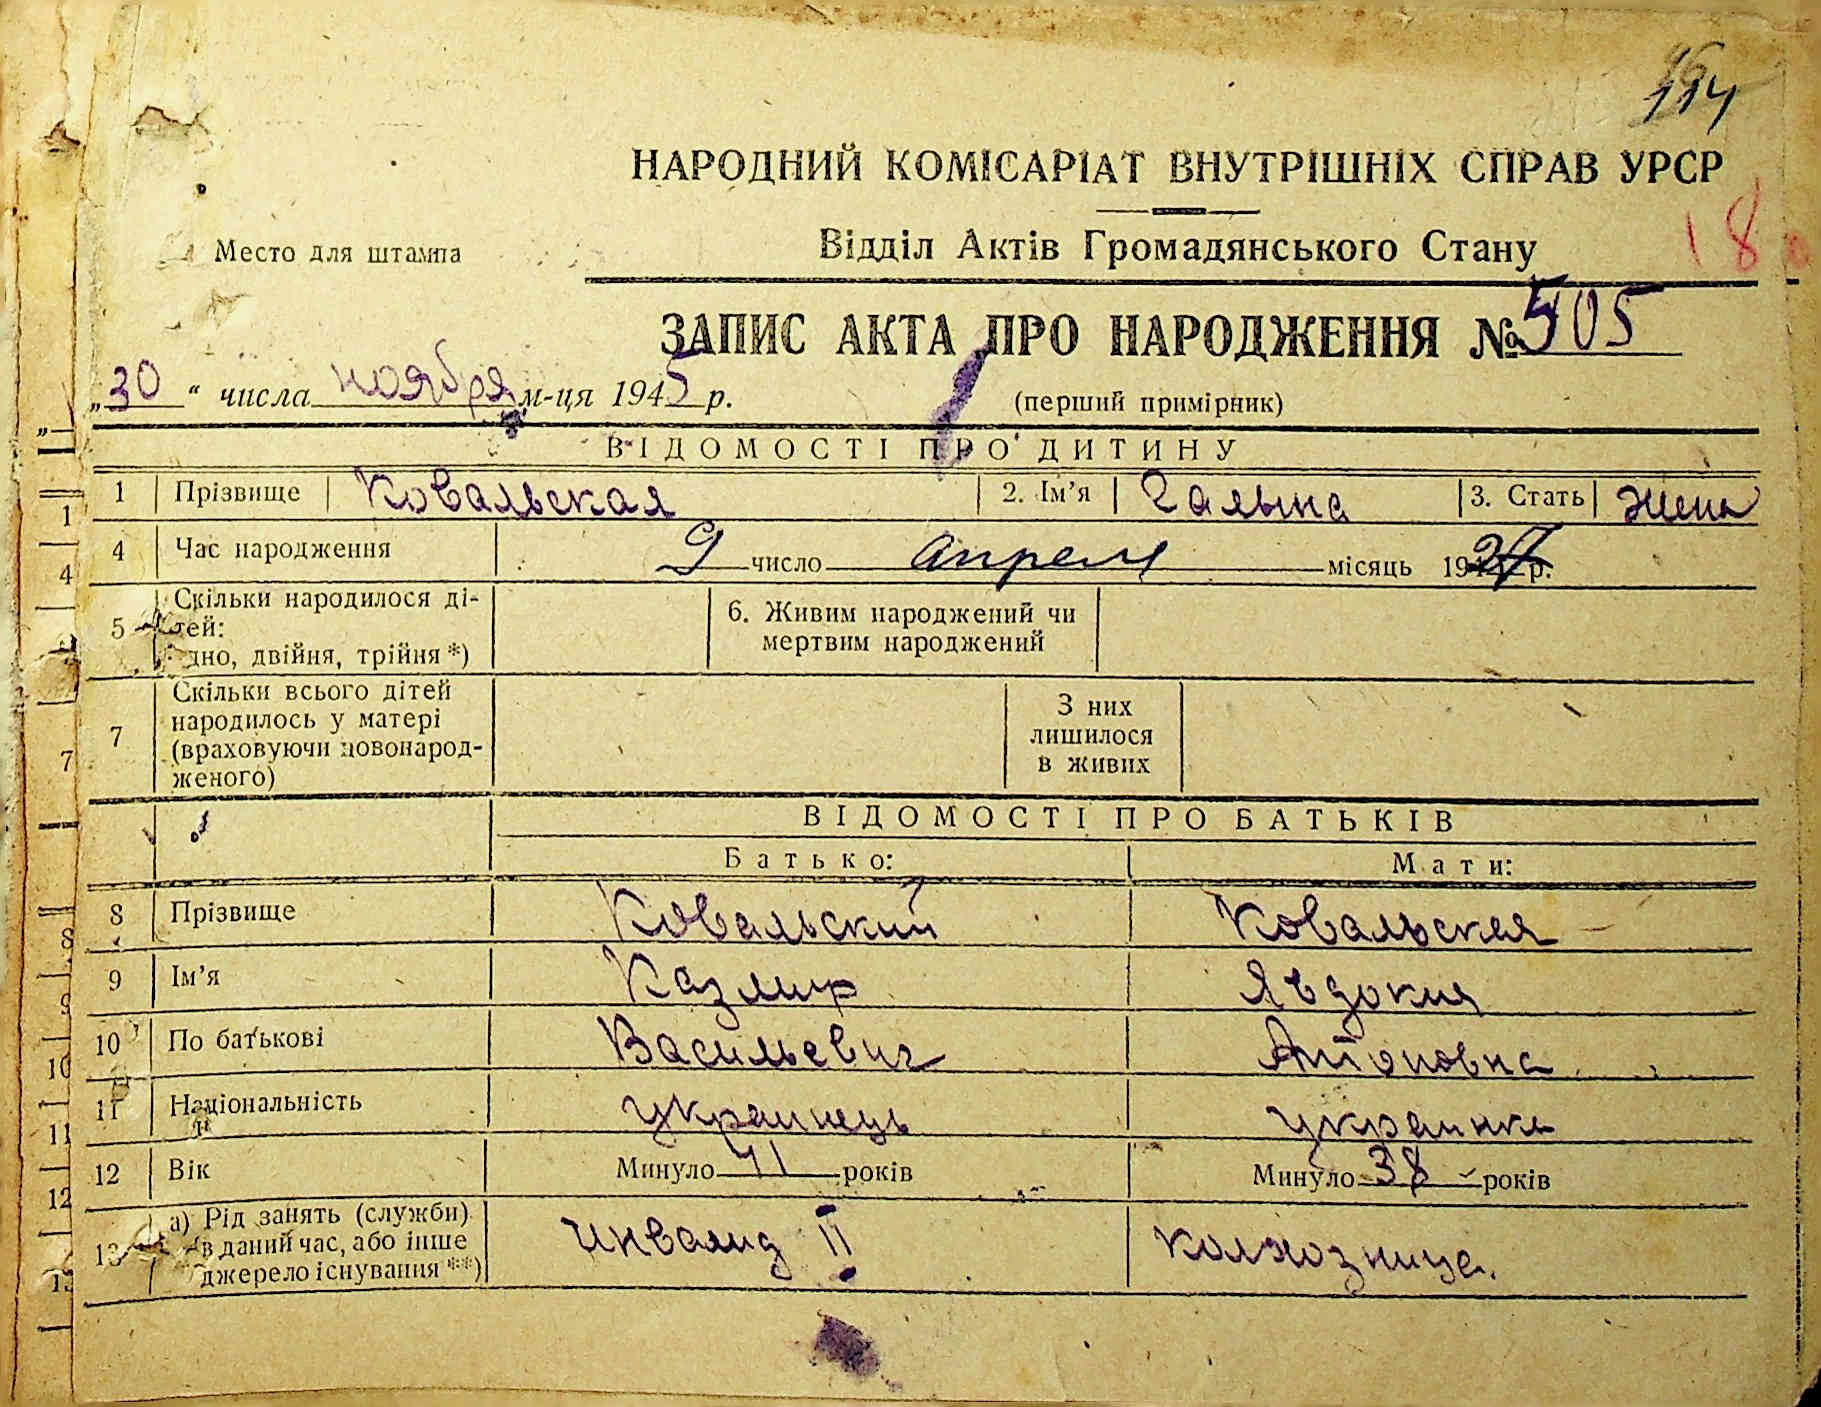 114
НАРОДНИЙ КОМІСАРІАТ ВНУТРІШНІХ СПРАВ УРСР
18
Место для штампа
Відділ Актів Громадянського Стану
ЗАПИС АКТА ПРО НАРОДЖЕННЯ № 505
„30“ числа ноября м-ця 1945 р.
(перший примірник)
ВІДОМОСТІ ПРО ДИТИНУ
1 Прізвище Ковальская 2. Ім’я Галына 3. Стать жена
4 Час народження 9 число апреля місяць 19 р.
5 Скільки народилося ді-
тей:
дно, двійня, трійня*)
6. Живим народжений чи
мертвим народжений
7 Скільки всього дітей
народилось у матері
(враховуючи новонарод-
женого)
З них
лишилося
в живих
ВІДОМОСТІ ПРО БАТЬКІВ
Батько: Мати:
8 Прізвище Ковальский Ковальская
9 Ім’я Казмир Явдокия
10 По батькові Васильевич Антоновна
11 Національність украинець украинка
12 Вік Минуло 41 років Минуло 38 років
13 а) Рід занять (служби)
в даний час, або інше
джерело існування **)
инвалид II колхозница.